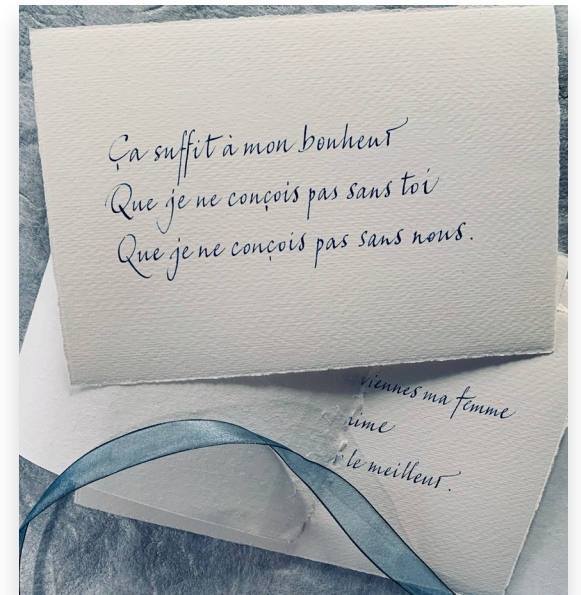 Ça suffit à mon bonheur
Que je ne conçois pas sans toi
Que je ne conçois pas sans nous.
ma femme
le meilleur.